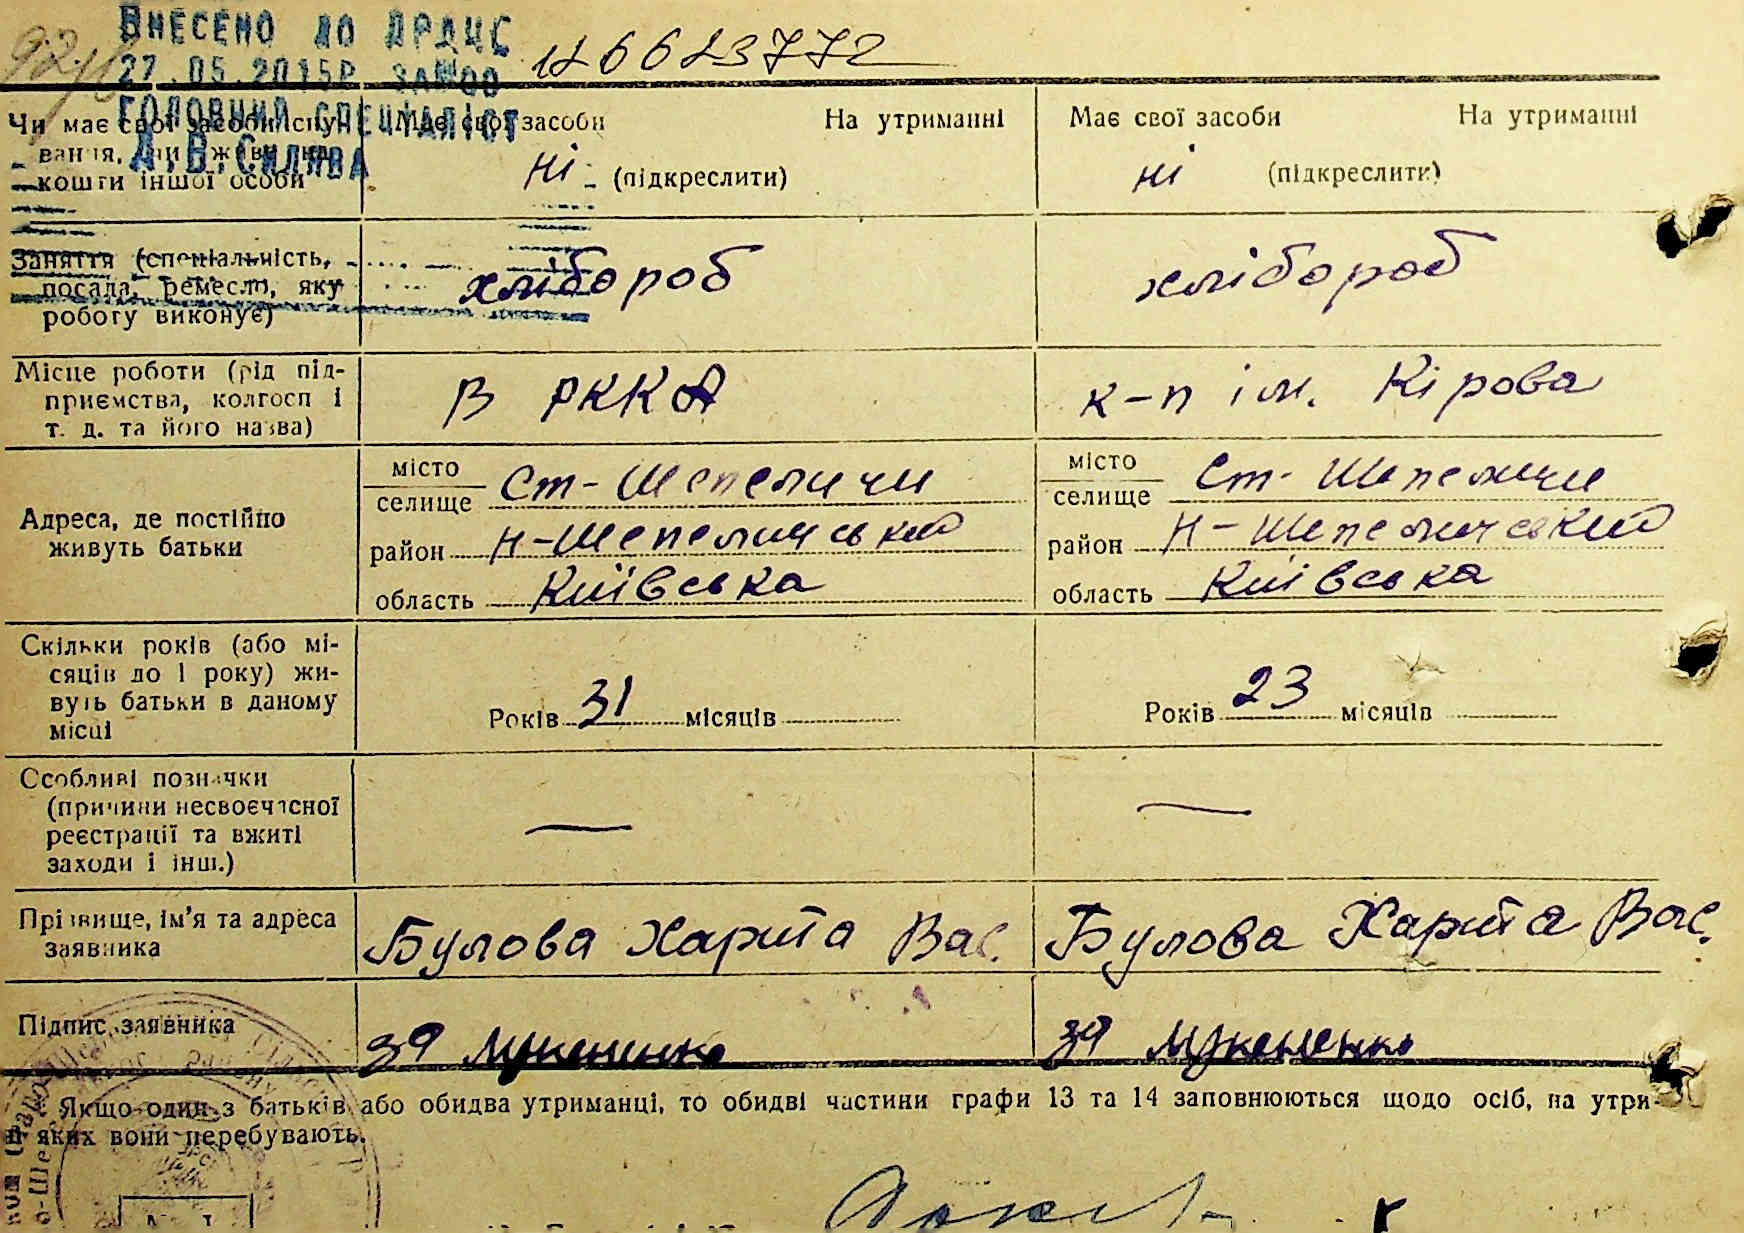 ВНЕСЕНО ДО ДРАЦС
27.05.2015Р ЗА №00 126623772
ГОЛОВНИЙ СПЕЦІАЛІСТ
Чи має свої засоби існу- Має свої засоби На утриманні Має свої засоби На утриманні
вання, чи живе на ні (підкреслити) ні (підкреслити)
кошти іншої особи
Заняття (спеціальність,
посада, ремесло, яку хлібороб хлібороб
роботу виконує)
Місце роботи (рід під-
приємства, колгосп і В РККА к-п ім. Кірова
т. д. та його назва)
Адреса, де постійно
живуть батьки
місто
селище Ст-Шепеличи
район Н-Шепеличський
область Київська
місто
селище Ст-Шепеличи
район Н-Шепеличський
область Київська
Скільки років (або мі-
сяців до 1 року) жи-
вуть батьки в даному Років 31 місяців Років 23 місяців
місці
Особливі позначки
(причини несвоєчасної — —
реєстрації та вжиті
заходи і інш.)
Прізвище, ім'я та адреса
заявника Булова Харита Вас. Булова Харита Вас.
Підпис заявника за за
Якщо один з батьків або обидва утриманці, то обидві частини графи 13 та 14 заповнюються щодо осіб, на утри-
яких вони перебувають.